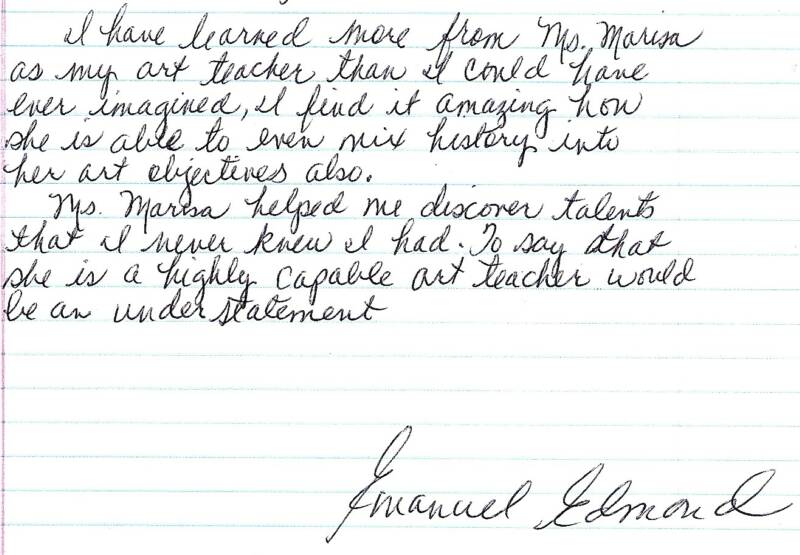 I have learned more from Ms. Marisa
as my art teacher than I could have
ever imagined, I find it amazing how
she is able to even mix history into
her art objectives also.
Ms. Marisa helped me discover talents
that I never knew I had. To say that
she is a highly capable art teacher would
be an understatement
Emanuel Edmond